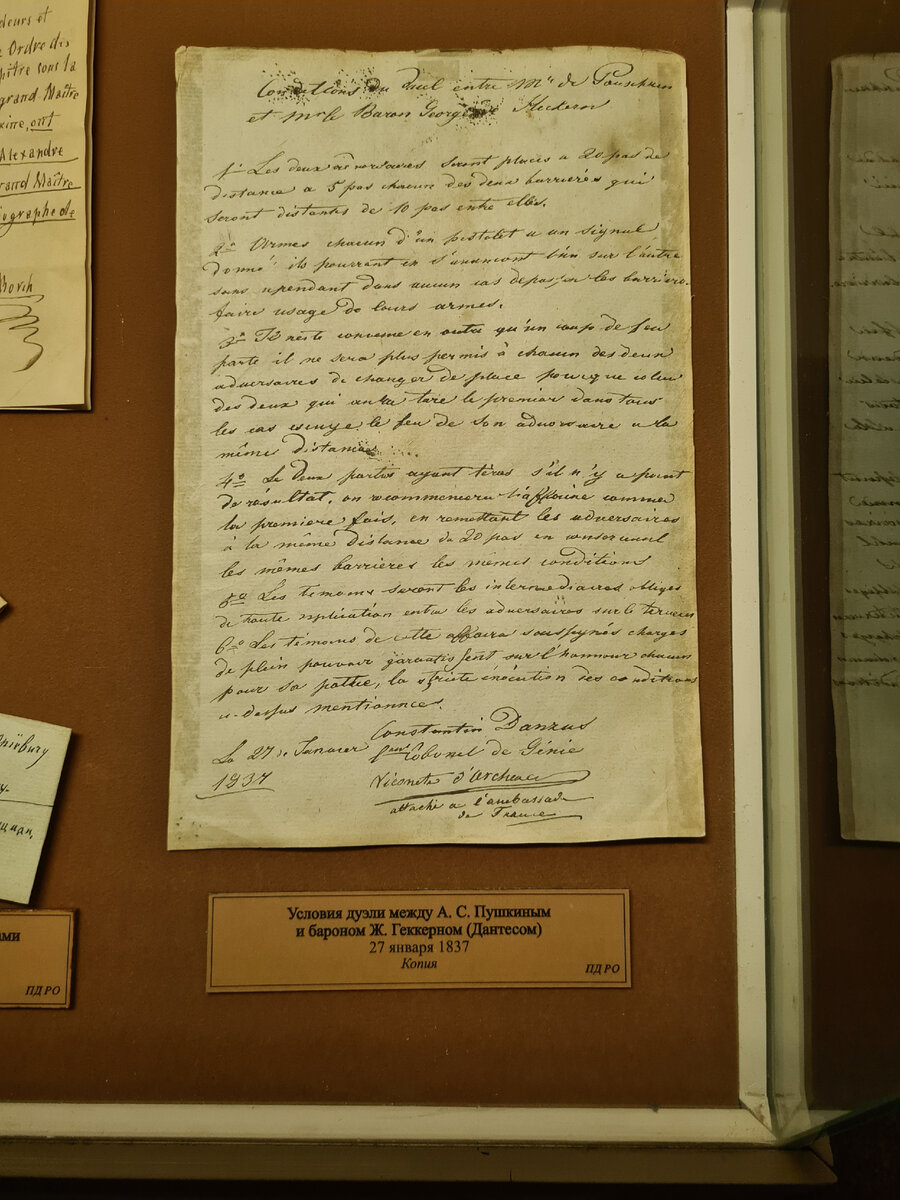 deurs et
Ordre des
aître sous la
grand Maître
ont
Alexandre
rand Maître
iographe de
Borch
Conditions du Duel entre Mr de Pouschkin
et Mr le Baron George de Heckern
1° Les deux adversaires seront placés a 20 pas de
distance a 5 pas chacun des deux barrières qui
seront distantes de 10 pas entre elles.
2° Armés chacun d'un pistolet a un signal
donné; ils pourront en s'avancant l'un sur l'autre
sans cependant dans aucun cas dépasser les barrières
faire usage de leurs armes.
3° Il reste convenu en outre qu'un coup de feu
parti il ne sera plus permis à chacun des deux
adversaires de changer de place pour que celui
des deux qui aura tiré le premier dans tous
les cas essuye le feu de son adversaire a la
même distance
4° Le deux parties ayant tirés s'il n'y a point
de résultat, on recommencera l'affaire comme
la première fois, en remettant les adversaires
à la même distance de 20 pas en conservant
les mêmes barrières les mêmes conditions
5° Les temoins seront les intermediaires obligés
de toute explication entre les adversaires sur le terrain
6° Les témoins de cette affaire soussignés chargés
de plein pouvoir garantissent sur l'honneur chacun
pour sa partie, la stricte exécution des conditions
ci-dessus mentionnées.
Constantin Danzas
Le 27 de Janvier Lieut Colonel de Génie
1837
Vicomte d'Archiac
attaché a l'ambassade
de France
ами
ПД РО
Условия дуэли между А. С. Пушкиным
и бароном Ж. Геккерном (Дантесом)
27 января 1837
Копия
ПД РО